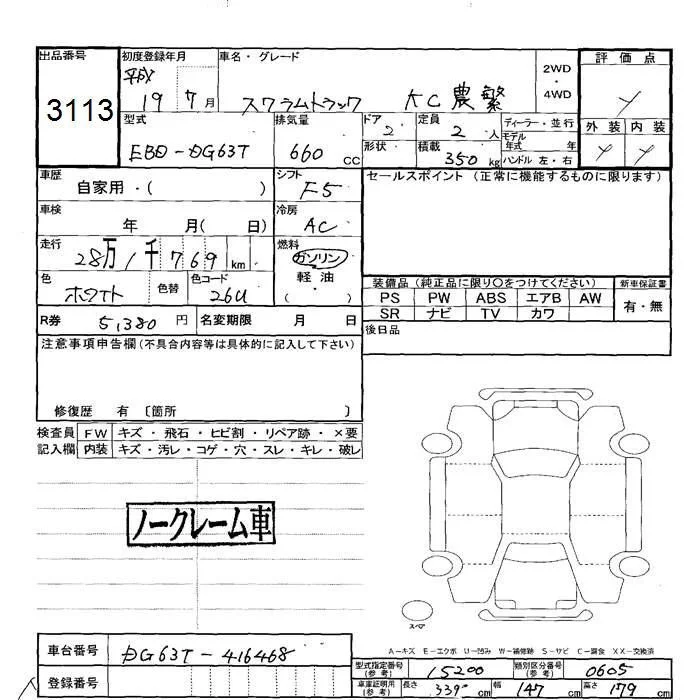 出品番号 初度登録年月 車名・グレード 評価点
3113 平成 19 7月 スクラムトラック KC農繁 2WD・4WD
型式 排気量 ドア 定員 ディーラー・並行 外装 内装
EBD-DG63T 660cc 2 2人 モデル年式 年
形状 積載 350kg ハンドル 左・右
車歴 自家用・( ) シフト F5 セールスポイント (正常に機能するものに限ります)
車検 年 月( 日) 冷房 AC
走行 28万1千769km 燃料 ガソリン
軽油
色 ホワイト 色替 色コード 26U ・
装備品 (純正品に限り○をつけてください) 新車保証書
PS PW ABS エアB AW 有・無
SR ナビ TV カワ
R券 5,380円 名変期限 月 日
後日品
注意事項申告欄(不具合内容等は具体的に記入して下さい)
修復歴 有 〔箇所 〕
検査員 FW キズ・飛石・ヒビ割・リペア跡・×要
記入欄 内装 キズ・汚レ・コゲ・穴・スレ・キレ・破レ
ノークレーム車
スペア
A-キズ E-エクボ U-凹み W-補修跡 S-サビ C-腐食 XX-交換済
車台番号 DG63T-416468
登録番号
型式指定番号(参考) 15200 類別区分番号(参考) 0605
車庫証明用(参考) 長さ 339cm 幅 147cm 高さ 179cm